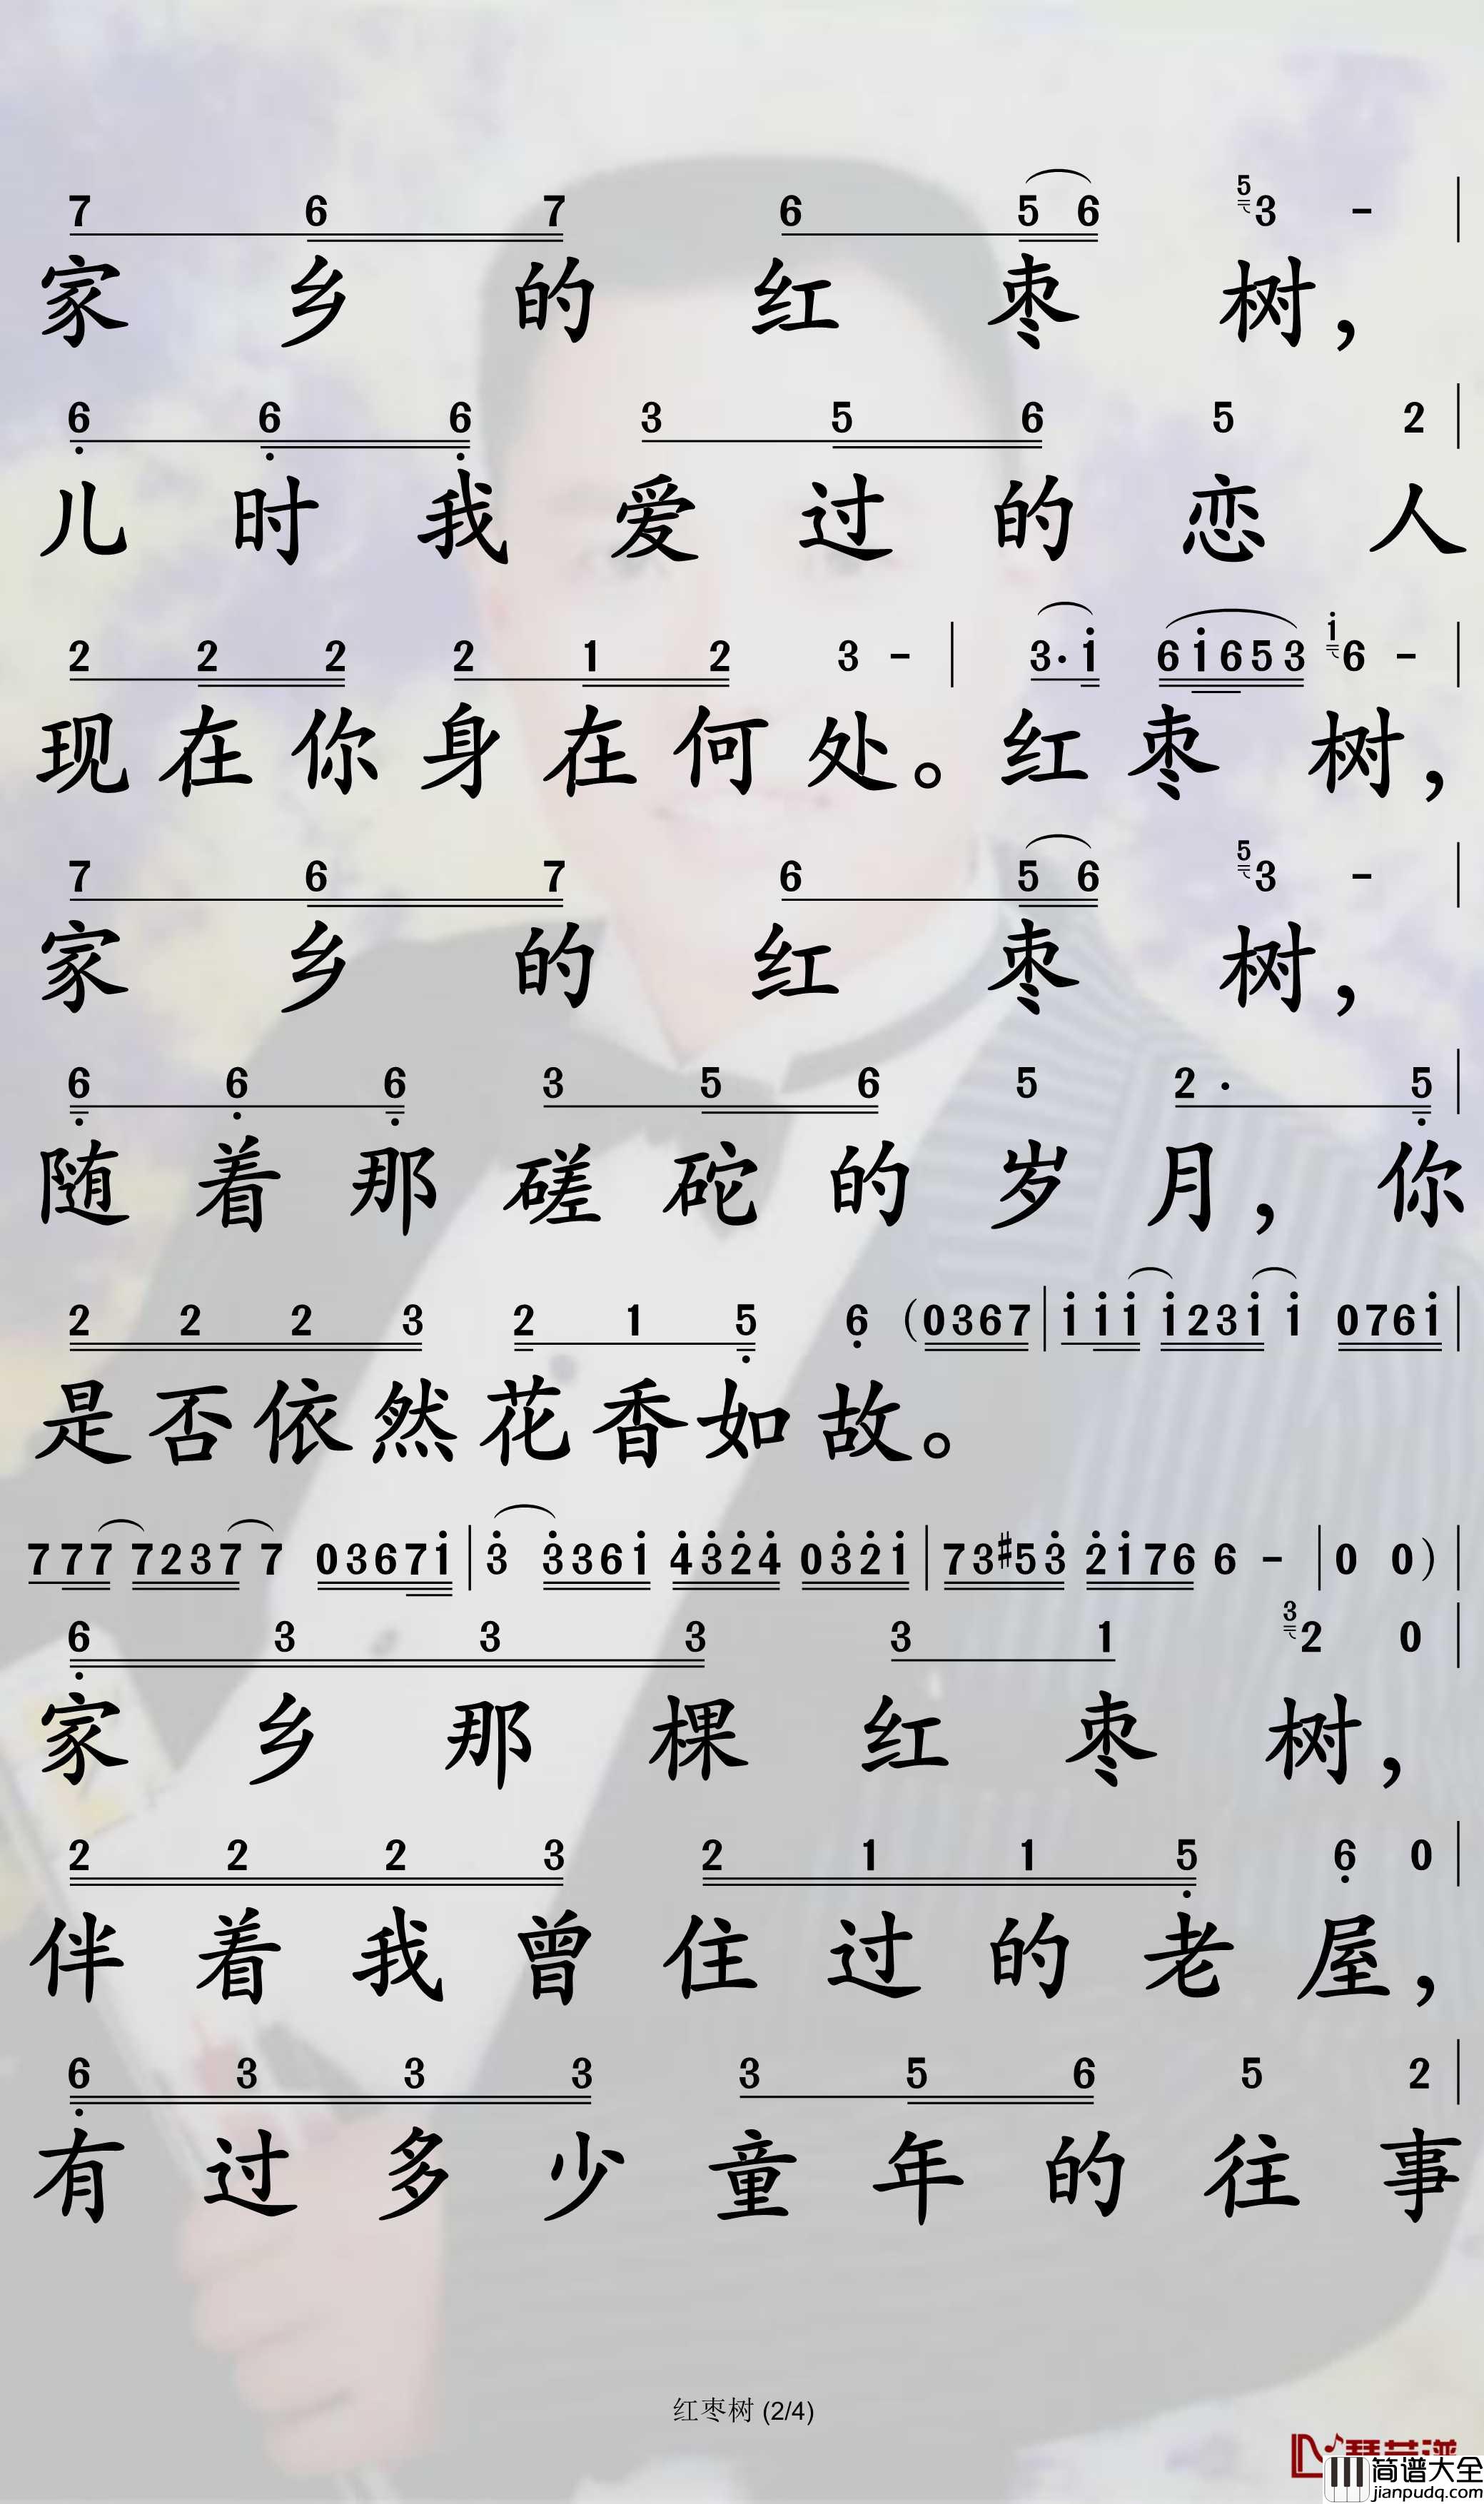 7 6 7 6 5 6 5 3 - |
家乡的红枣树，
6̣ 6̣ 6̣ 3 5 6 5 2 |
儿时我爱过的恋人
2 2 2 2 1 2 3 - | 3· i̇ 6 i̇ 6 5 3 i̇ 6 - |
现在你身在何处。红枣树，
7 6 7 6 5 6 5 3 - |
家乡的红枣树，
6̣ 6̣ 6̣ 3 5 6 5 2 · 5̣ |
随着那磋砣的岁月，你
2 2 2 3 2 1 5̣ 6̣ (0 3 6 7 | i̇ i̇ i̇ i̇ 2 3 i̇ i̇ 0 7 6 i̇ |
是否依然花香如故。
7 7 7 7 2 3 7 7 0 3 6 7 i̇ | 3̇ 3̇ 3 6 i̇ 4̇ 3̇ 2̇ 4̇ 0 3̇ 2̇ i̇ | 7 3 #5 3̇ 2̇ i̇ 7 6 6 - | 0 0 ) |
6̣ 3 3 3 3 1 3 2 0 |
家乡那棵红枣树，
2 2 2 3 2 1 1 5̣ 6̣ 0 |
伴着我曾住过的老屋，
6̣ 3 3 3 3 5 6 5 2 |
有过多少童年的往事
红枣树 (2/4)
简谱大全
jianpudq.com